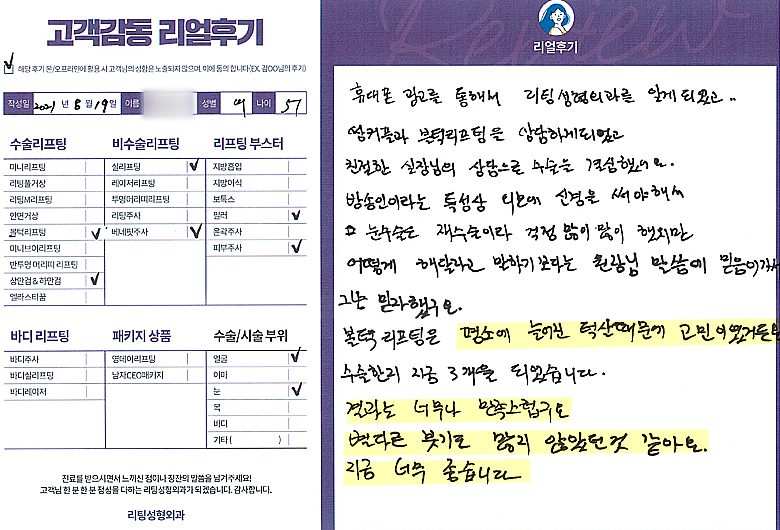 고객감동 리얼후기
해당 후기 온/오프라인에 활용 시 고객님의 성함은 노출되지 않으며, 이에 동의 합니다(EX. 김OO님의 후기)
작성일 2021 년 8 월 19일 이름 성별 여 나이 57
수술리프팅
미니리프팅
리팅풀거상
리팅M리프팅
안면거상
볼턱리프팅
미니브이리프팅
반투명 머리띠 리프팅
상안검 & 하안검
엘라스티꿈
비수술리프팅
실리프팅
레이저리프팅
투명머리띠리프팅
리팅주사
베네핏주사
리프팅 부스터
지방흡입
지방이식
보톡스
필러
윤곽주사
피부주사
바디 리프팅
바디주사
바디실리프팅
바디레이저
패키지 상품
영데이리프팅
남자CEO패키지
수술/시술 부위
얼굴
이마
눈
목
바디
기타 ( )
진료를 받으시면서 느끼신 점이나 칭찬의 말씀을 남겨주세요!
고객님 한 분 한 분 정성을 다하는 리팅성형외과가 되겠습니다. 감사합니다.
리팅성형외과
Review
리얼후기
휴대폰 광고를 통해서 리팅성형외과를 알게되었고..
앞커플과 볼턱리프팅을 상담하게되었고
친절한 실장님의 상담으로 수술을 결심했어요.
방송인이라는 특성상 외모에 신경을 써야해서
눈수술은 재수술이라 걱정 많이 많이 했지만
어떻게 해달라고 말하기 보다는 원장님 말씀에 믿음이가서
그냥 믿자했구요.
볼턱 리프팅은 평소에 늘어진 턱살때문에 고민이었거든요
수술한지 지금 3개월 되었습니다.
결과는 너무나 만족스럽구요
별다른 붓기도 많지 않았던것 같아요.
지금 너무 좋습니다